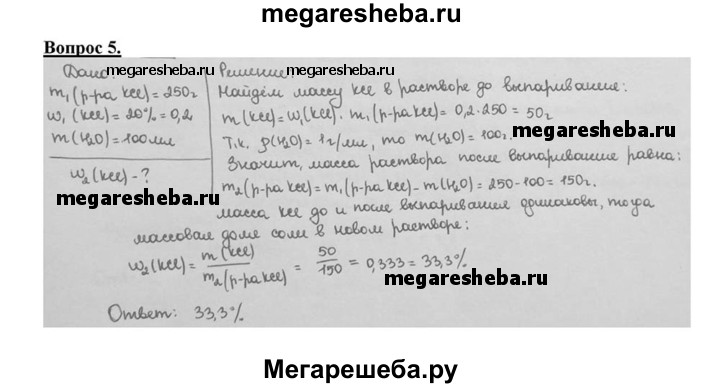 megaresheba.ru
Вопрос 5.
Дано: megaresheba.ru Решение:
m₁(р-ра KCl)=250г
w₁(KCl)=20%=0,2
m(H₂O)=100мл
w₂(KCl)-?
megaresheba.ru
Найдём массу KCl в растворе до выпаривания:
m(KCl)=w₁(KCl)·m₁(р-ра KCl)=0,2·250=50г
Т.к. ρ(H₂O)=1г/мл, то m(H₂O)=100г.
megaresheba.ru
Значит, масса раствора после выпаривания равна:
m₂(р-ра KCl)=m₁(р-ра KCl)-m(H₂O)=250-100=150г.
масса KCl до и после выпаривания одинаковы, тогда
массовая доля соли в новом растворе:
w₂(KCl)=m(KCl)/m₂(р-ра KCl)=50/150=0,333=33,3%
megaresheba.ru
Ответ: 33,3%
Мегарешеба.ру